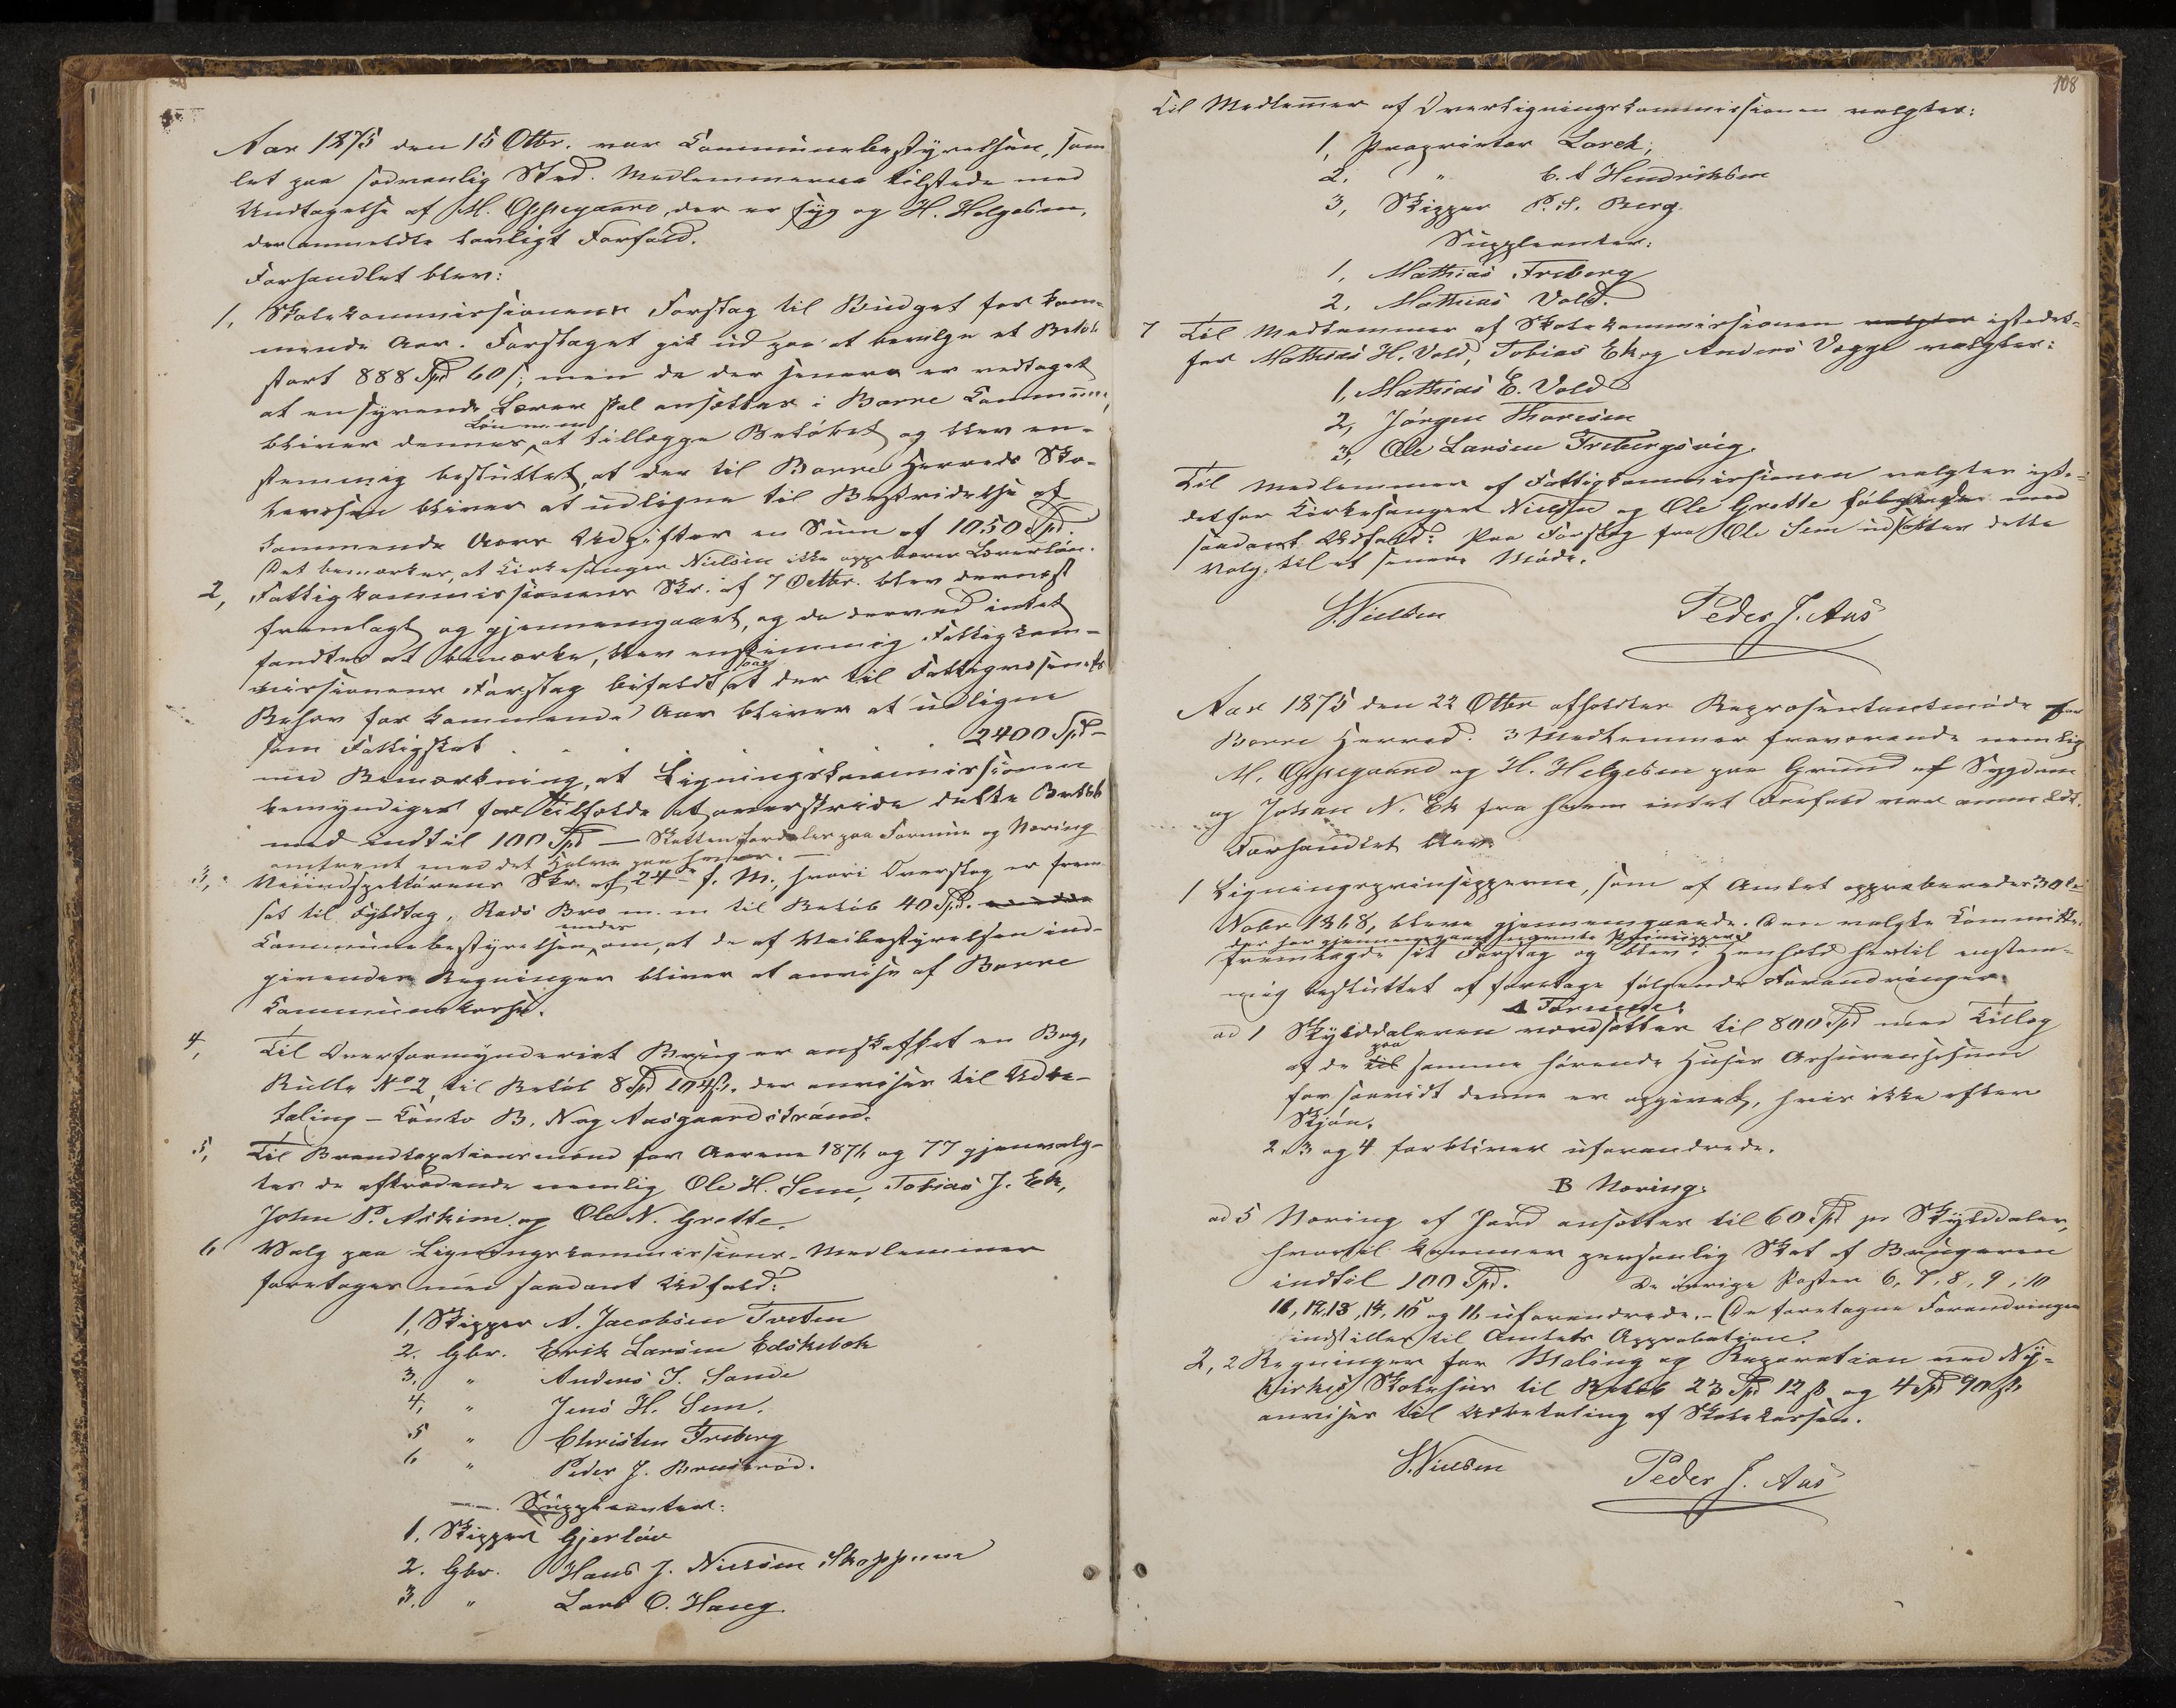 Aar 1875 den 15 Otbr. var Communebestyrelsen, sam-
let paa sædvanlig Sted. Medlemmerne tilstede med
Undtagelse af M. Oppegaard, der er syg og H. Helgesen,
der anmeldte lovligt Forfald.
Forhandlet blev:
1, Skolekommissionens Forslag til Budget for kom-
mende Aar. Forslaget gik ud paa at bevilge et Beløb
stort 888 Spd 60 s; men da der senere er vedtaget
at en syvende Lærer skal ansættes i Borre Commune,
Løn m. m
bliver dennes at tillægge Beløbet og blev en-
stemmig besluttet, at der til Borre Herreds Sko-
levæsen bliver at udligne til Bestridelse af
kommende Aars Udgifter en Sum af 1050 Spd
Det bemærkes, at Kirkesanger Nielsen ikke oppebærer Lærerløn.
2, Fattigkommissionens Skr. af 7 Octbr. blev dernæst
fremlagt og gjennemgaaet, og da derved intet
fandtes at bemærke, blev enstemmig Fattigkom-
missionens Forslag bifaldt, at der til Fattigvæsenets
Behov for kommende Aar bliver at udligne
som Fattigskat . . . . 2400 Spd -
med Bemærkning, at Ligningskommissionen
bemyndiges for Tilfælde at overskride dette Beløb
med indtil 100 Spd — Skatten fordeles paa Formue og Næring
omtrent med det Halve paa hver. —
3, Veiinspektørens Skr. af 24 f. M., hvori Overslag er frem-
sat til Fyldtag, Rads Bro m. m til Beløb 40 Spd.
enedes
Communebestyrelsen om, at de af Veibestyrelsen ind-
givende Regninger bliver at anvise af Borre
Communekasse.
4, Til Overformynderiet Brug er anskaffet en Bog,
Rulle No 2, til Beløb 8 Spd 104 ß. der anvises til Udbe-
taling - Konto B. N og Aasgaardstrand.
5, Til Brandtaxationsmænd for Aarene 1876 og 77 gjenvalg-
tes de aftrædende nemlig Ole H. Sem, Tobias J. Ek,
John P. Askim og Ole N. Grette.
6 Valg paa Ligningskommissions-Medlemmer
foretoges med saadant Udfald:
1, Skipper A. Jacobsen Tveten
2. Gbr. Erik Larsen Edskebek
3. " Anders J. Sande
4, " Jens H. Sem.
5 " Christen Freberg
6 " Peder J. Bruserød.
Suppleanter:
1. Skipper Gjerløw
2. Gbr. Hans J. Nielsen Skoppum
3. " Lars O. Haug.
108
Til Medlemmer af Overligningskommissionen valgtes:
1, Proprietær Lorck,
2. " C. A Hendriksen
3, Skipper P. A. Berg.
Suppleanter:
1, Mathias Freberg
2, Mathias Vold.
7 Til Medlemmer af Skolekommissionen valgtes istedet-
for Mathias H. Vold, Tobias Ek og Anders Bøgge valgtes:
1, Mathias E. Vold
2, Jørgen Thoresen
3, Ole Larsen Frebergsvig.
Til Medlemmer af Fattigkommissionen valgtes iste-
detfor Kirkesanger Nielsen og Ole Grette følgende med
saadant Udfald: Paa Forslag fra Ole Sem udsattes dette
Valg til et senere Møde.
S. Nielsen Peder J. Aas
Aar 1875 den 22 Otbr afholdtes Repræsentantmøde for
Borre Herred. 3 Medlemmer fraværende nemlig
M. Oppegaard og H. Helgesen paa Grund af Sygdom
og Johan N. Ek fra hvem intet Forfald var anmeldt.
Forhandlet blev:
1 Ligningsprinsipperne, som af Amtet approberedes 30te
Novbr 1868, bleve gjennemgaaede. Den valgte Committe
der har gjennemgaaet nævnte Principper
fremlagde sit Forslag og blev i Henhold hertil enstem-
mig besluttet at foretage følgende Forandringer:
A Formue:
ad 1 Skylddaleren værdsættes til 800 Spd med Tillæg
paa
af de til samme hørende Huses Assuransesum
forsaavidt denne er opgivet, hvis ikke efter
Skjøn.
2, 3 og 4 forbliver uforandrede.
B Næring:
ad 5 Næring af Jord ansættes til 60 Spd pr Skylddaler,
hvortil kommer personlig Skat af Brugeren
indtil 100 Spd. De øvrige Poster 6, 7, 8, 9, 10
11, 12, 13, 14, 15 og 16 uforandrede. - De foretagne Forandringer
indstilles til Amtets Approbation.
2, 2 Regninger for Maling og Reparation ved Ny-
kirkes Skolehus til Beløb 23 Spd 12 ß og 4 Spd 90 ß.
anvises til Udbetaling af Skolekassen.
S. Nielsen Peder J. Aas